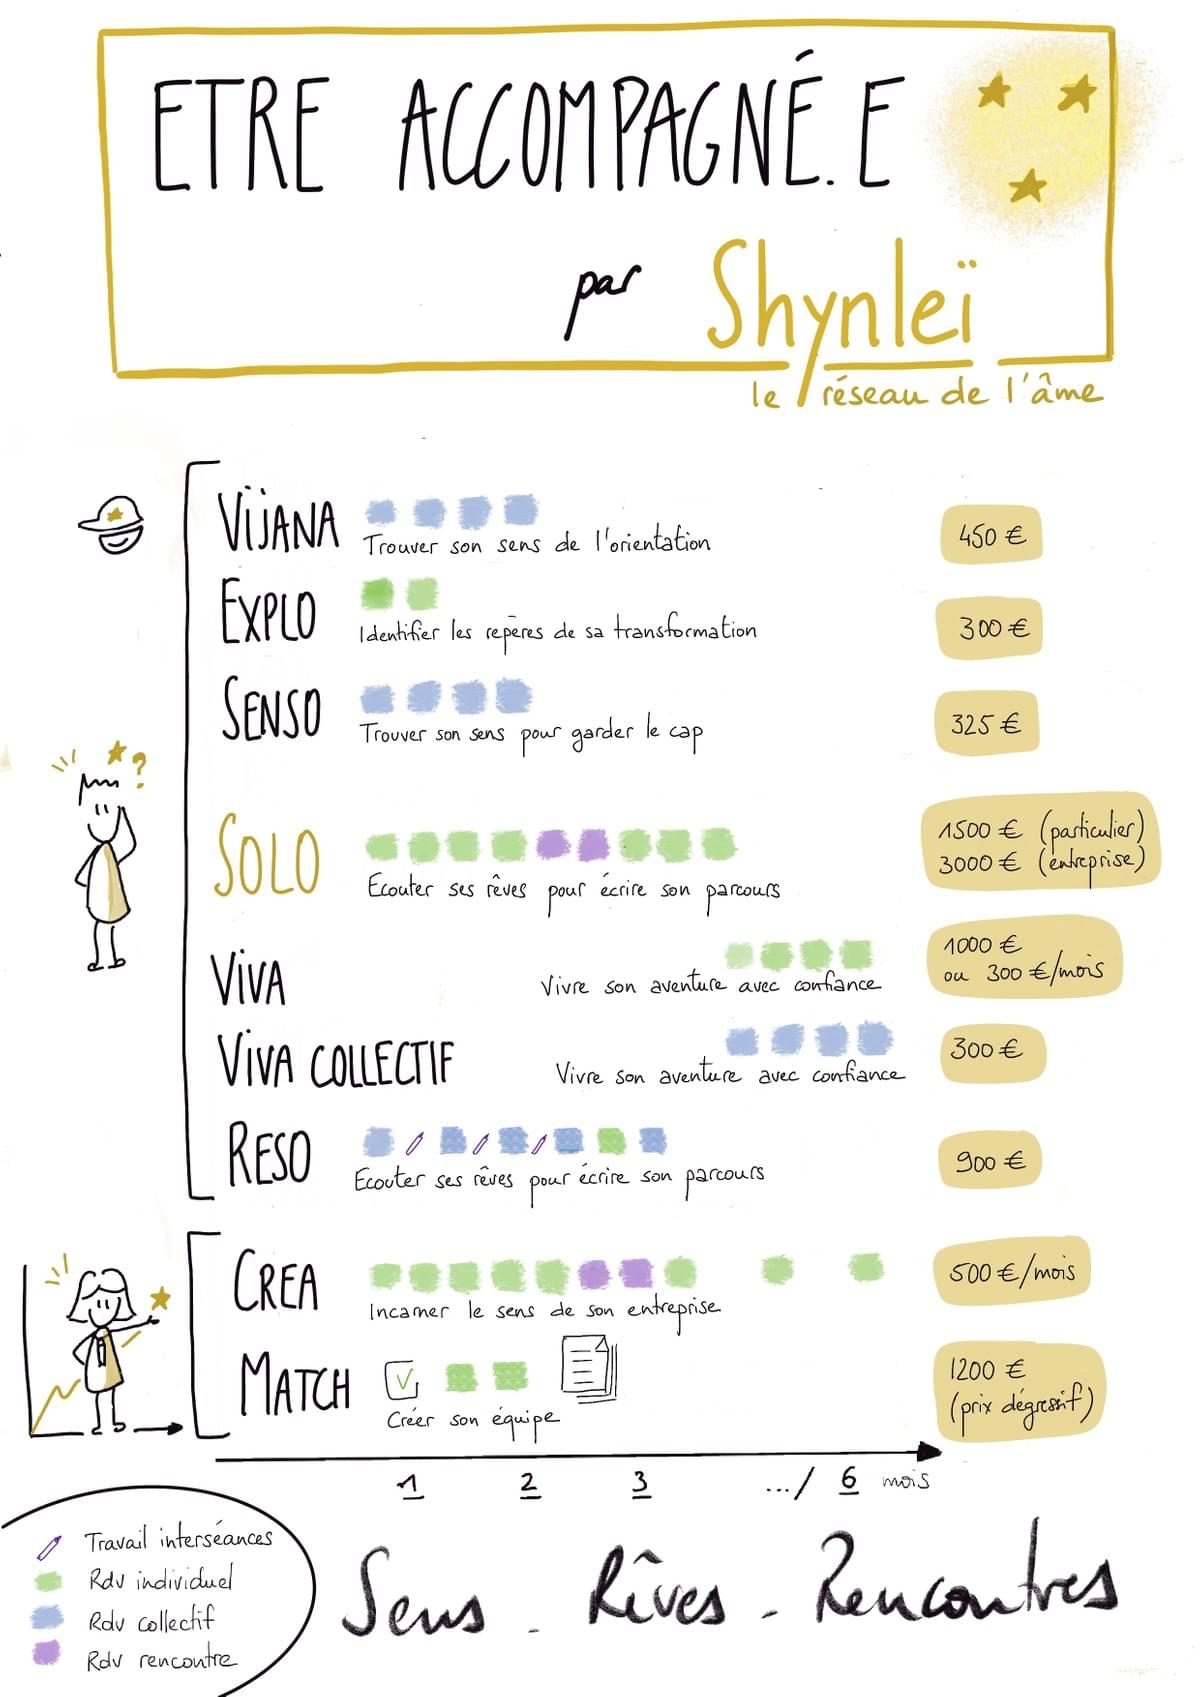 ETRE ACCOMPAGNÉ.E
par Shynleï
le réseau de l'âme
VïJANA
Trouver son sens de l'orientation
450 €
EXPLO
Identifier les repères de sa transformation
300 €
SENSO
Trouver son sens pour garder le cap
325 €
?
SOLO
Ecouter ses rêves pour écrire son parcours
1500 € (particulier)
3000 € (entreprise)
ViVA
Vivre son aventure avec confiance
1000 €
ou 300 €/mois
ViVA COLLECTIF
Vivre son aventure avec confiance
300 €
RESO
Ecouter ses rêves pour écrire son parcours
900 €
CREA
Incarner le sens de son entreprise
500 €/mois
MATCH
Créer son équipe
1200 €
(prix dégressif)
1 2 3 .../ 6 mois
Travail interséances
Rdv individuel
Rdv collectif
Rdv rencontre
Sens - Rêves - Rencontres